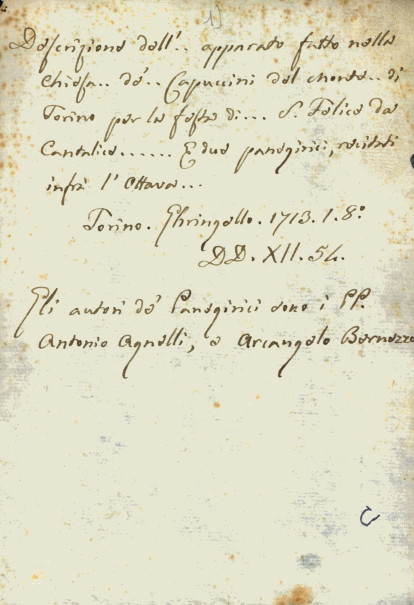 1)
Descrizione dell'.. apparato fatto nella
Chiesa.. de'.. Capuccini del monte.. di
Torino per la festa di... S. Felice da
Cantalice...... E due panegirici, recitati
infrà l'Ottava...
Torino. Ghringello. 1713. 1. 8.º
DD. XII. 54.
Gli autori de' Panegirici sono i PP.
Antonio Agnelli, e Arcangelo Bernezzo